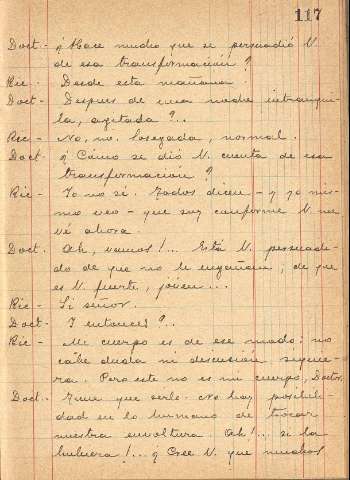 117
Doct - ¿Hace mucho que se persuadió V.
de esa transformación?
Ric - Desde esta mañana.
Doct - Despues de una noche intranqui-
la, agitada?..
Ric - No, no. Sosegada, normal.
Doct. ¿Cómo se dió V. cuenta de esa
transformación?
Ric - Yo no sé. Todos dicen - y yo mis-
mo veo - que soy conforme V. me
vé ahora.
Doct. Ah, vamos!... Está V. persuadi-
do de que no le engañan; de que
es V. fuerte, jóven...
Ric - Si señor.
Doct - Y entonces?..
Ric - Mi cuerpo es de ese modo: no
cabe duda ni discusión siquie-
ra. Pero este no es mi cuerpo, Doctor.
Doct. Tiene que serlo. No hay posibili-
dad en lo humano de trocar
nuestra envoltura. Ah!... si la
hubiera!... ¿Cree V. que muchos